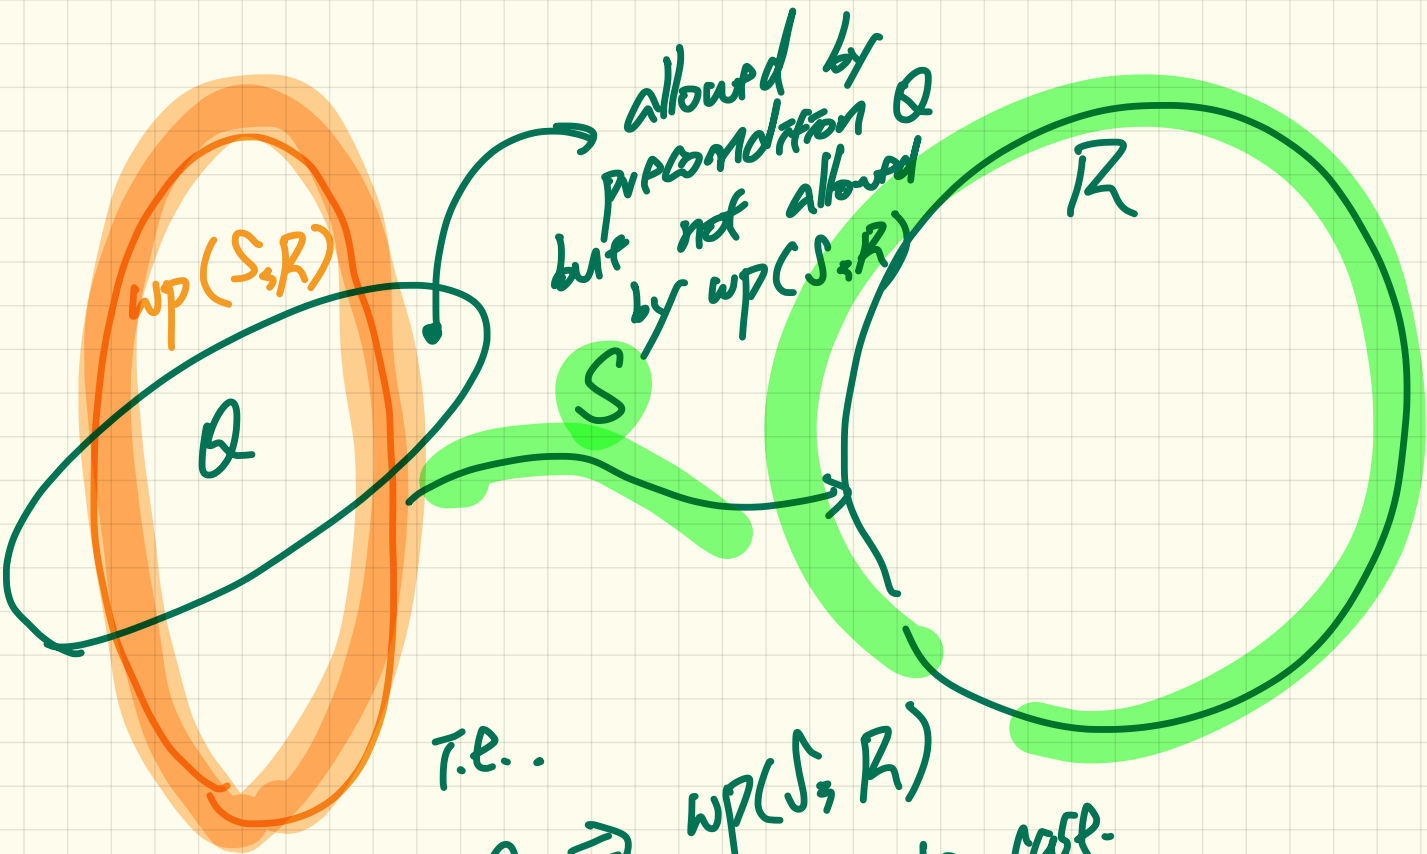 allowed by
precondition Q
but not allowed
by wp(S, R)
R
wp(S, R)
S
Q
I.e..
wp(S, R)